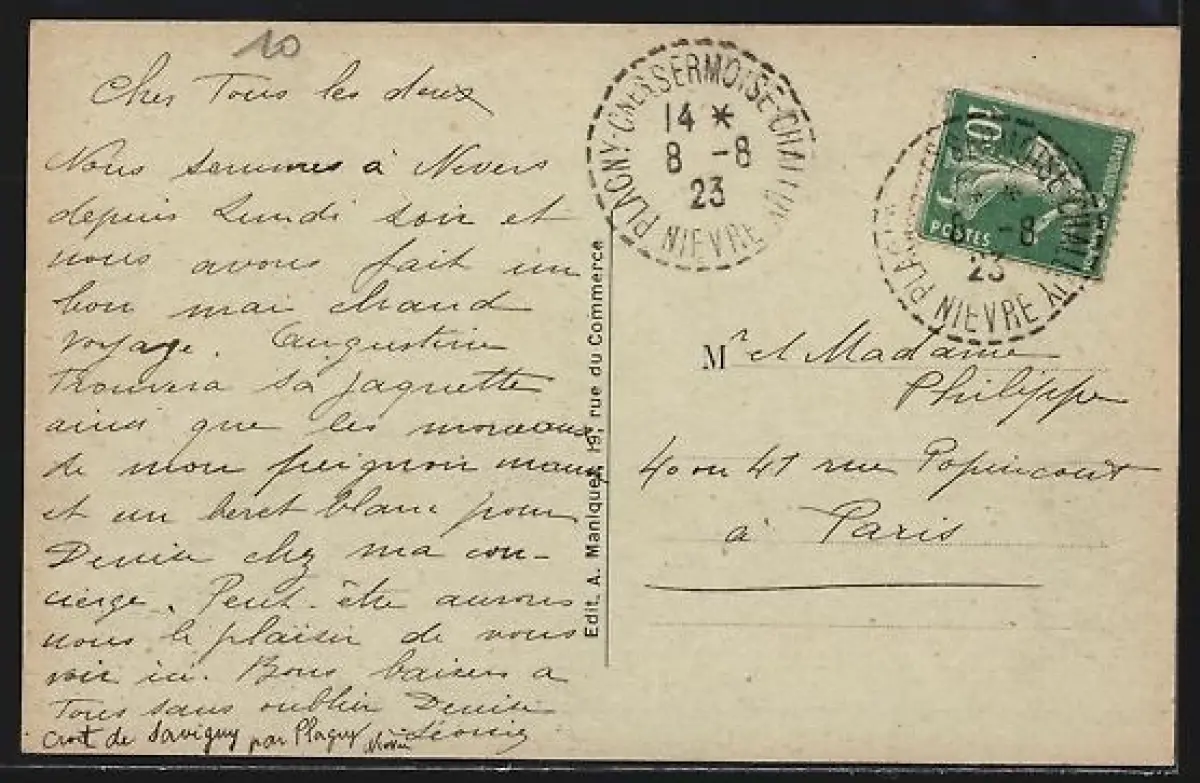 10
Cher Tous les deux
Nous sommes à Nevers
depuis Lundi soir et
nous avons fait un
bon mai chaud
voyage. Augustine
trouvera sa jaquette
ainsi que les morceaux
de mon peignoir
et un beret blanc pour
Denise chez ma con-
cierge. Peut-être aurons
nous le plaisir de vous
voir ici. Bons baisers a
Tous sans oublier Denise
Léonie
Crot de Savigny par Plagny Nièvre
Edit. A. Maniquet, 19, rue du Commerce
PLAGNY-CNE SERMOISE-CHALLUY
14 *
8 -8
23
NIEVRE
10
POSTES
8 -8
23
NIEVRE
Mr et Madame
Philippe
40 ou 41 rue Popincourt
à Paris